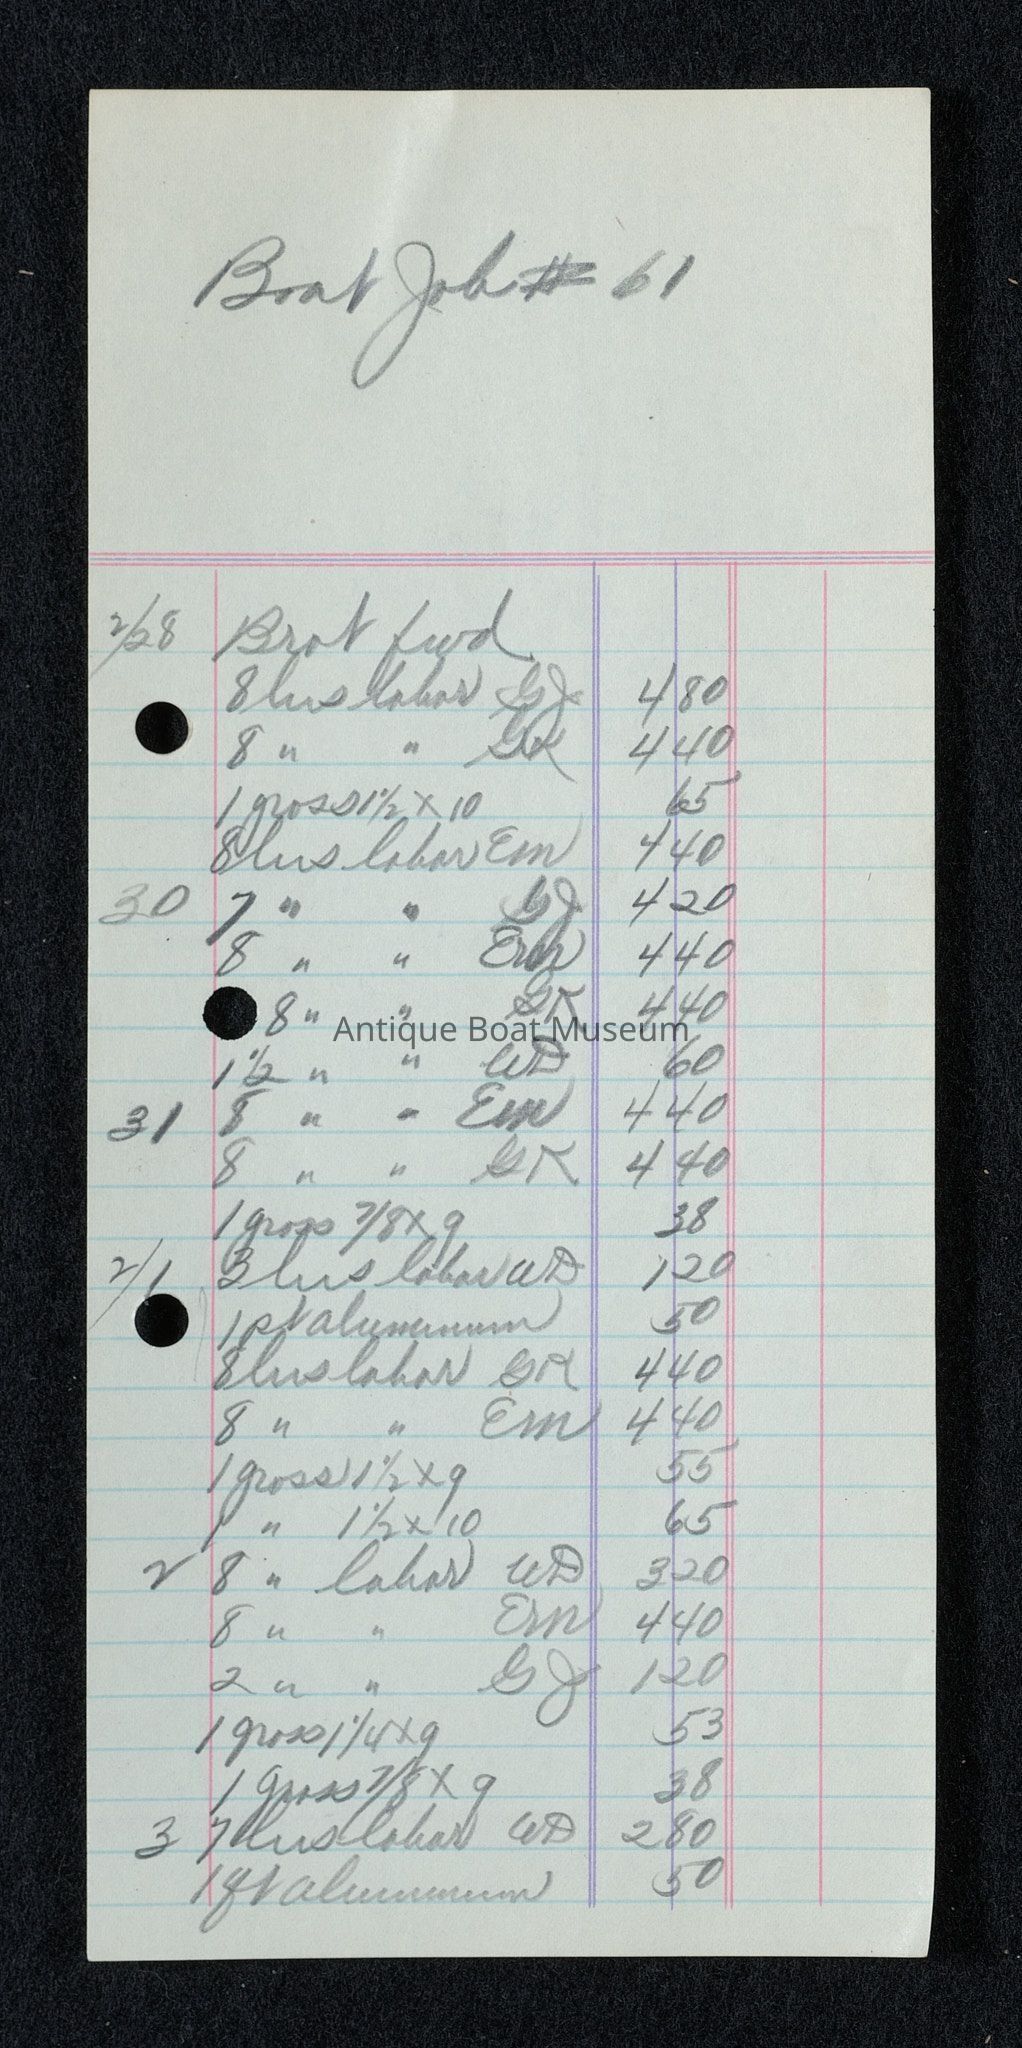 Boat Job # 61
2/28 Brot fwd
8 hrs labor GJ 4 80
8 " " GK 4 40
1 gross 1 1/2 x 10 65
8 hrs labor Em 4 40
30 7 " " GJ 4 20
8 " " Em 4 40
8 " " GK 4 40
Antique Boat Museum
1 1/2 " " WD 60
31 8 " " Em 4 40
8 " " GK 4 40
1 gross 7/8 x 9 38
2/1 3 hrs labor WD 1 20
1 pt aluminum 50
8 hrs labor GK 4 40
8 " " Em 4 40
1 gross 1 1/2 x 9 55
1 " 1 1/2 x 10 65
2 8 " labor WD 3 20
8 " " Em 4 40
2 " " GJ 1 20
1 gross 1 1/4 x 9 53
1 gross 7/8 x 9 38
3 7 hrs labor WD 2 80
1 qt aluminum 50